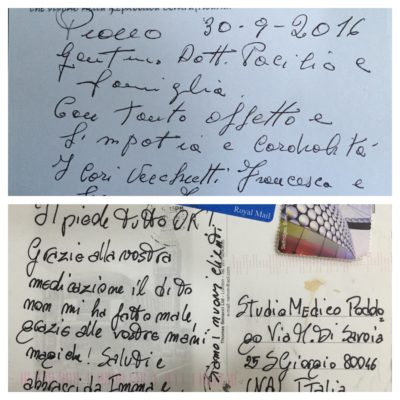 30-9-2016
Gent.mo Dott. Pacilio e
famiglia.
Con tanto affetto e
simpatia e cordialità
I cari Vecchietti Francesca e
Royal Mail
Il piede tutto OK!
Grazie alla vostra
medicazione il dito
non mi ha fatto male
grazie alle vostre mani
magiche! Saluti e
abbracci da Imma e
Siamo! nuovi clienti
Studio Medico Podolo
go Via M. Di Savoia
25 S Giorgio 80046
(NA) Italia